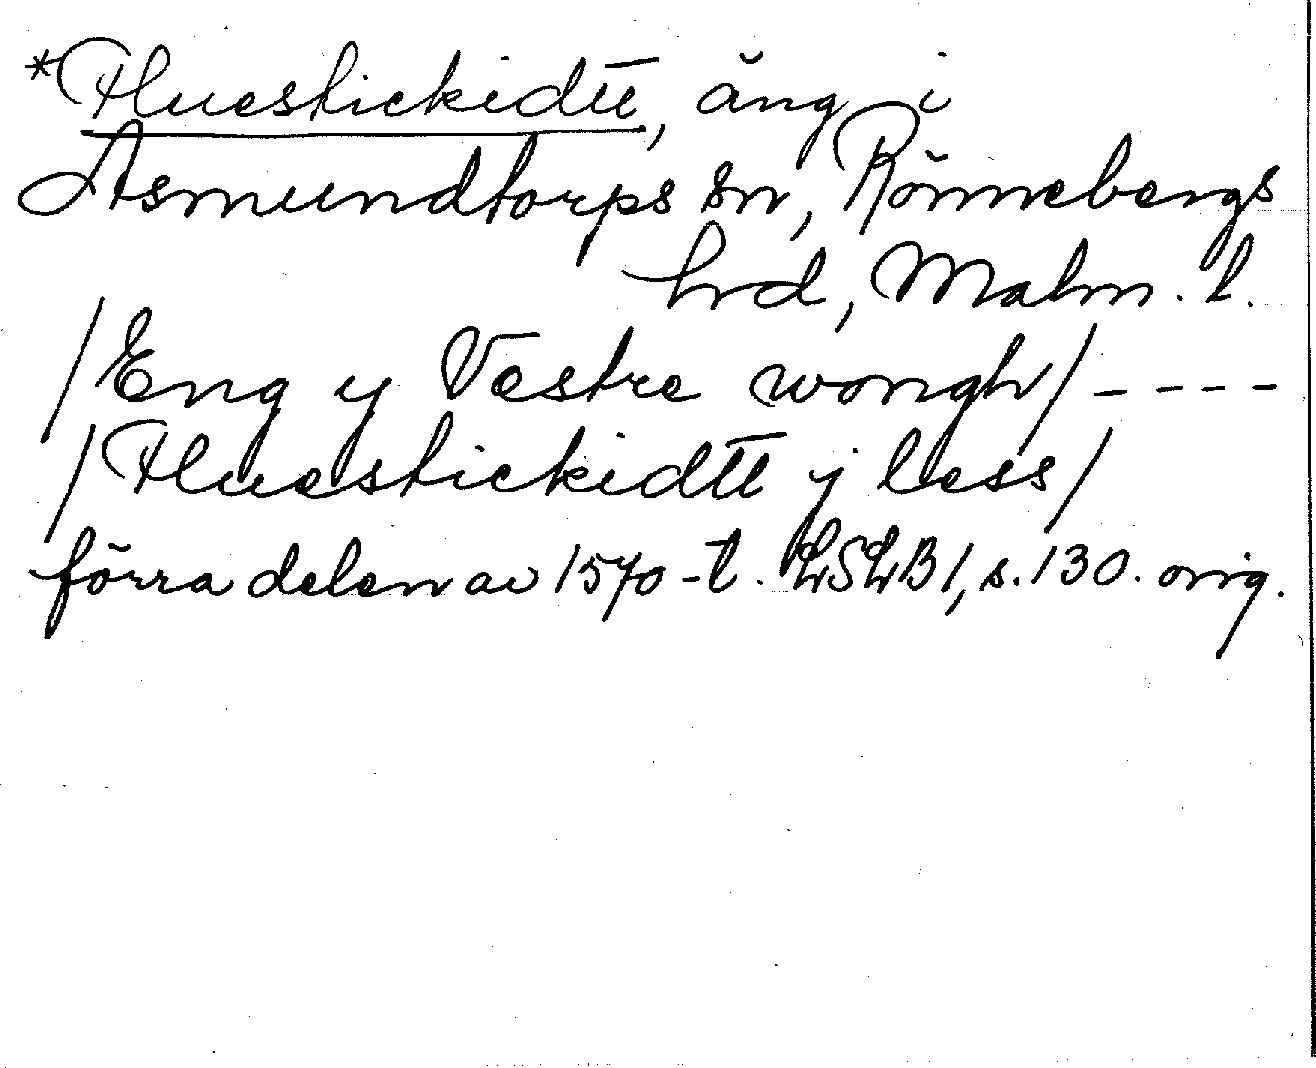 *Huestickidtt, äng i
Asmundtorps sn, Rönnebergs
hrd, Malm. l.
/Eng y Vestre wongh/ - - - -
/Huestickidtt j less/
förra delen av 1570-t. LSLB 1, s. 130. orig.